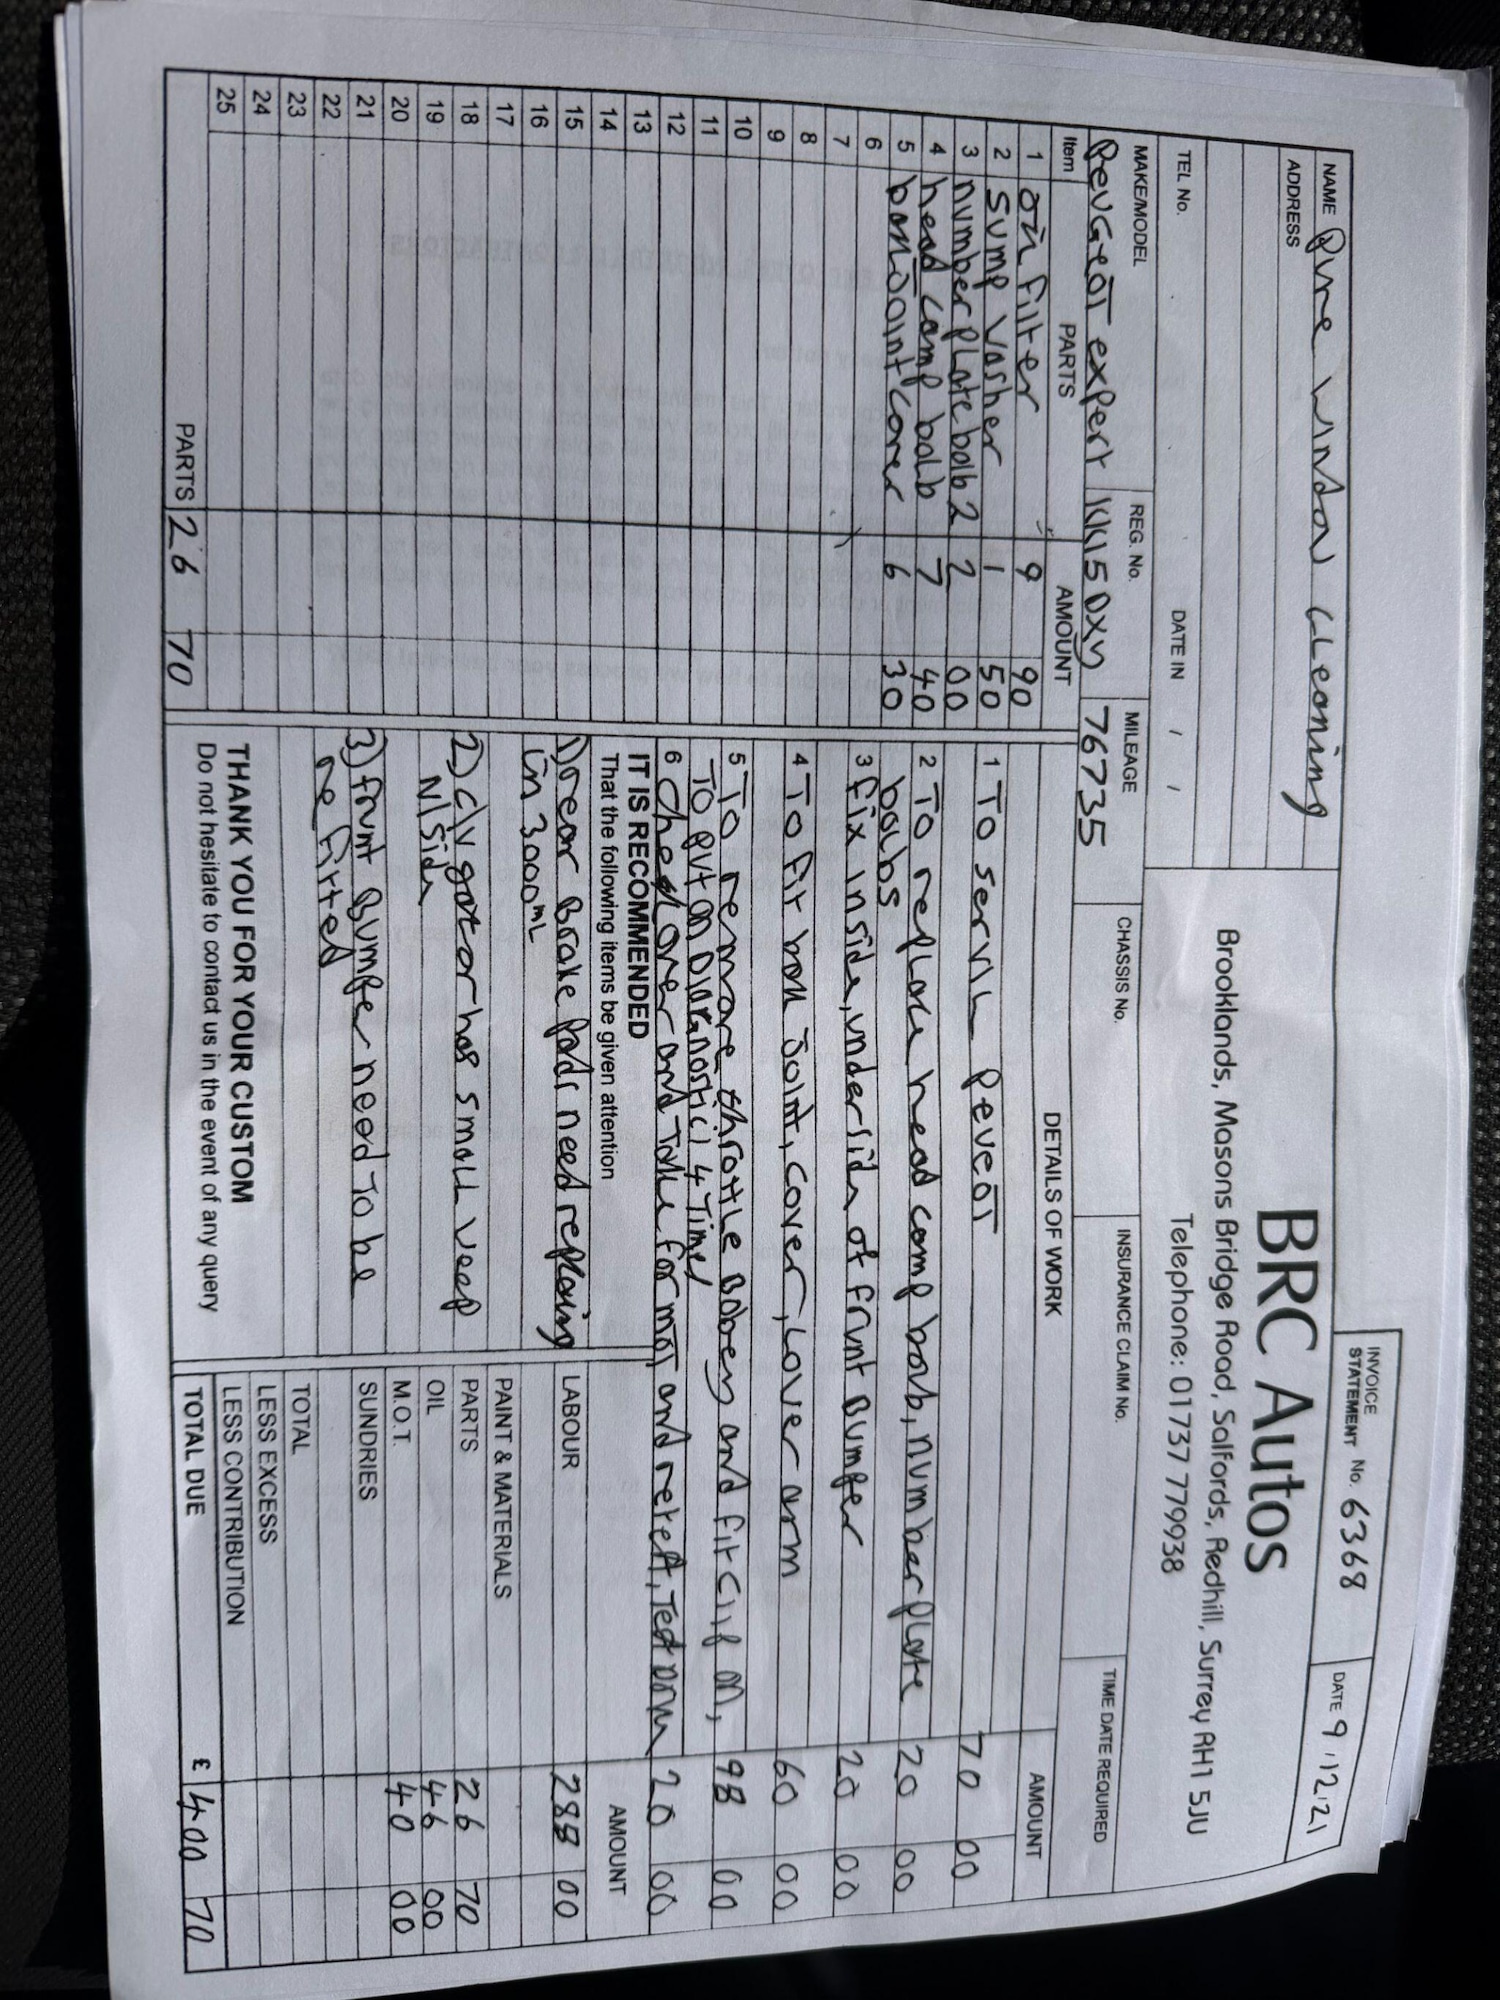 INVOICE
STATEMENT No. 6368
DATE 9/12/21
BRC Autos
Brooklands, Masons Bridge Road, Salfords, Redhill, Surrey RH1 5JU
Telephone: 01737 779938
NAME Pure window cleaning
ADDRESS
TEL No.
DATE IN / /
MAKE/MODEL REG. No. MILEAGE CHASSIS No. INSURANCE CLAIM No. TIME DATE REQUIRED
Peugeot expert KK15 OXY 76735
Item PARTS AMOUNT
1 oil filter 9 90
2 sump washer 1 50
3 number plate bolb 2 2 00
4 head lamp bolb 7 40
5 boll joint cover 6 30
6
7
8
9
10
11
12
13
14
15
16
17
18
19
20
21
22
23
24
25
PARTS 26 70
DETAILS OF WORK AMOUNT
1 To service Peugeot 70 00
2 To replace head lamp bolb, number plate 20 00
bolbs
3 fix inside, underside of frunt Bumper 20 00
4 To fit boll joint, cover, lower arm 60 00
5 To remove throttle Bobey and fit clip on, 98 00
To put on Diagnostic 4 Times
6 check over and take for mot and retest, Test drive 20 00
IT IS RECOMMENDED
That the following items be given attention
1) rear Brake Pads need replacing
in 3000 ml
2) c/v gator has small weep
N/Side
3) frunt Bumper need To be
re fitted
THANK YOU FOR YOUR CUSTOM
Do not hesitate to contact us in the event of any query
AMOUNT
LABOUR 288 00
PAINT & MATERIALS
PARTS 26 70
OIL 46 00
M.O.T. 40 00
SUNDRIES
TOTAL
LESS EXCESS
LESS CONTRIBUTION
TOTAL DUE £ 400 70